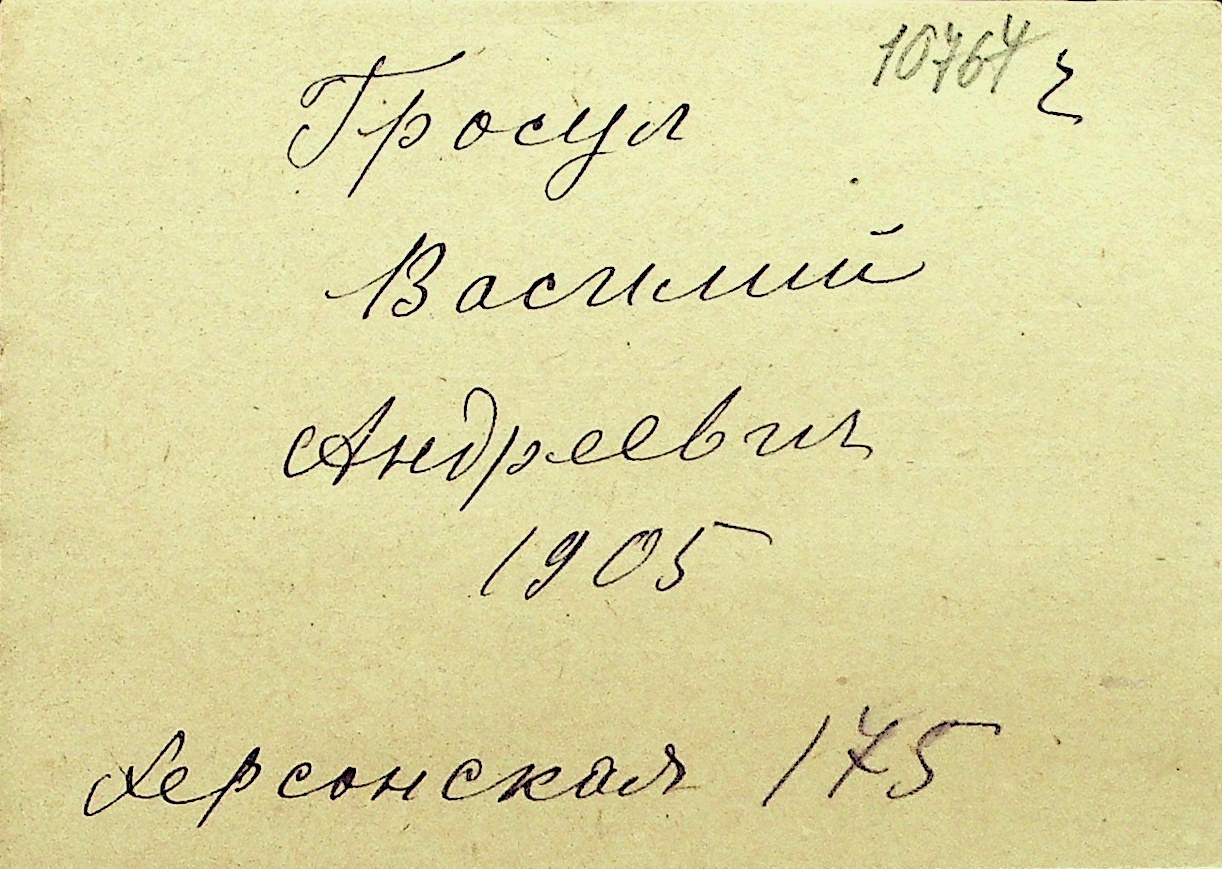 10764 г
Гросул
Василий
Андреевич
1905
Херсонская 175